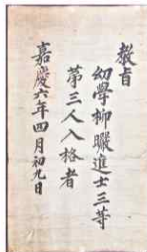 教旨
幼學柳㘒進士三等
第三人入格者
嘉慶六年四月初九日